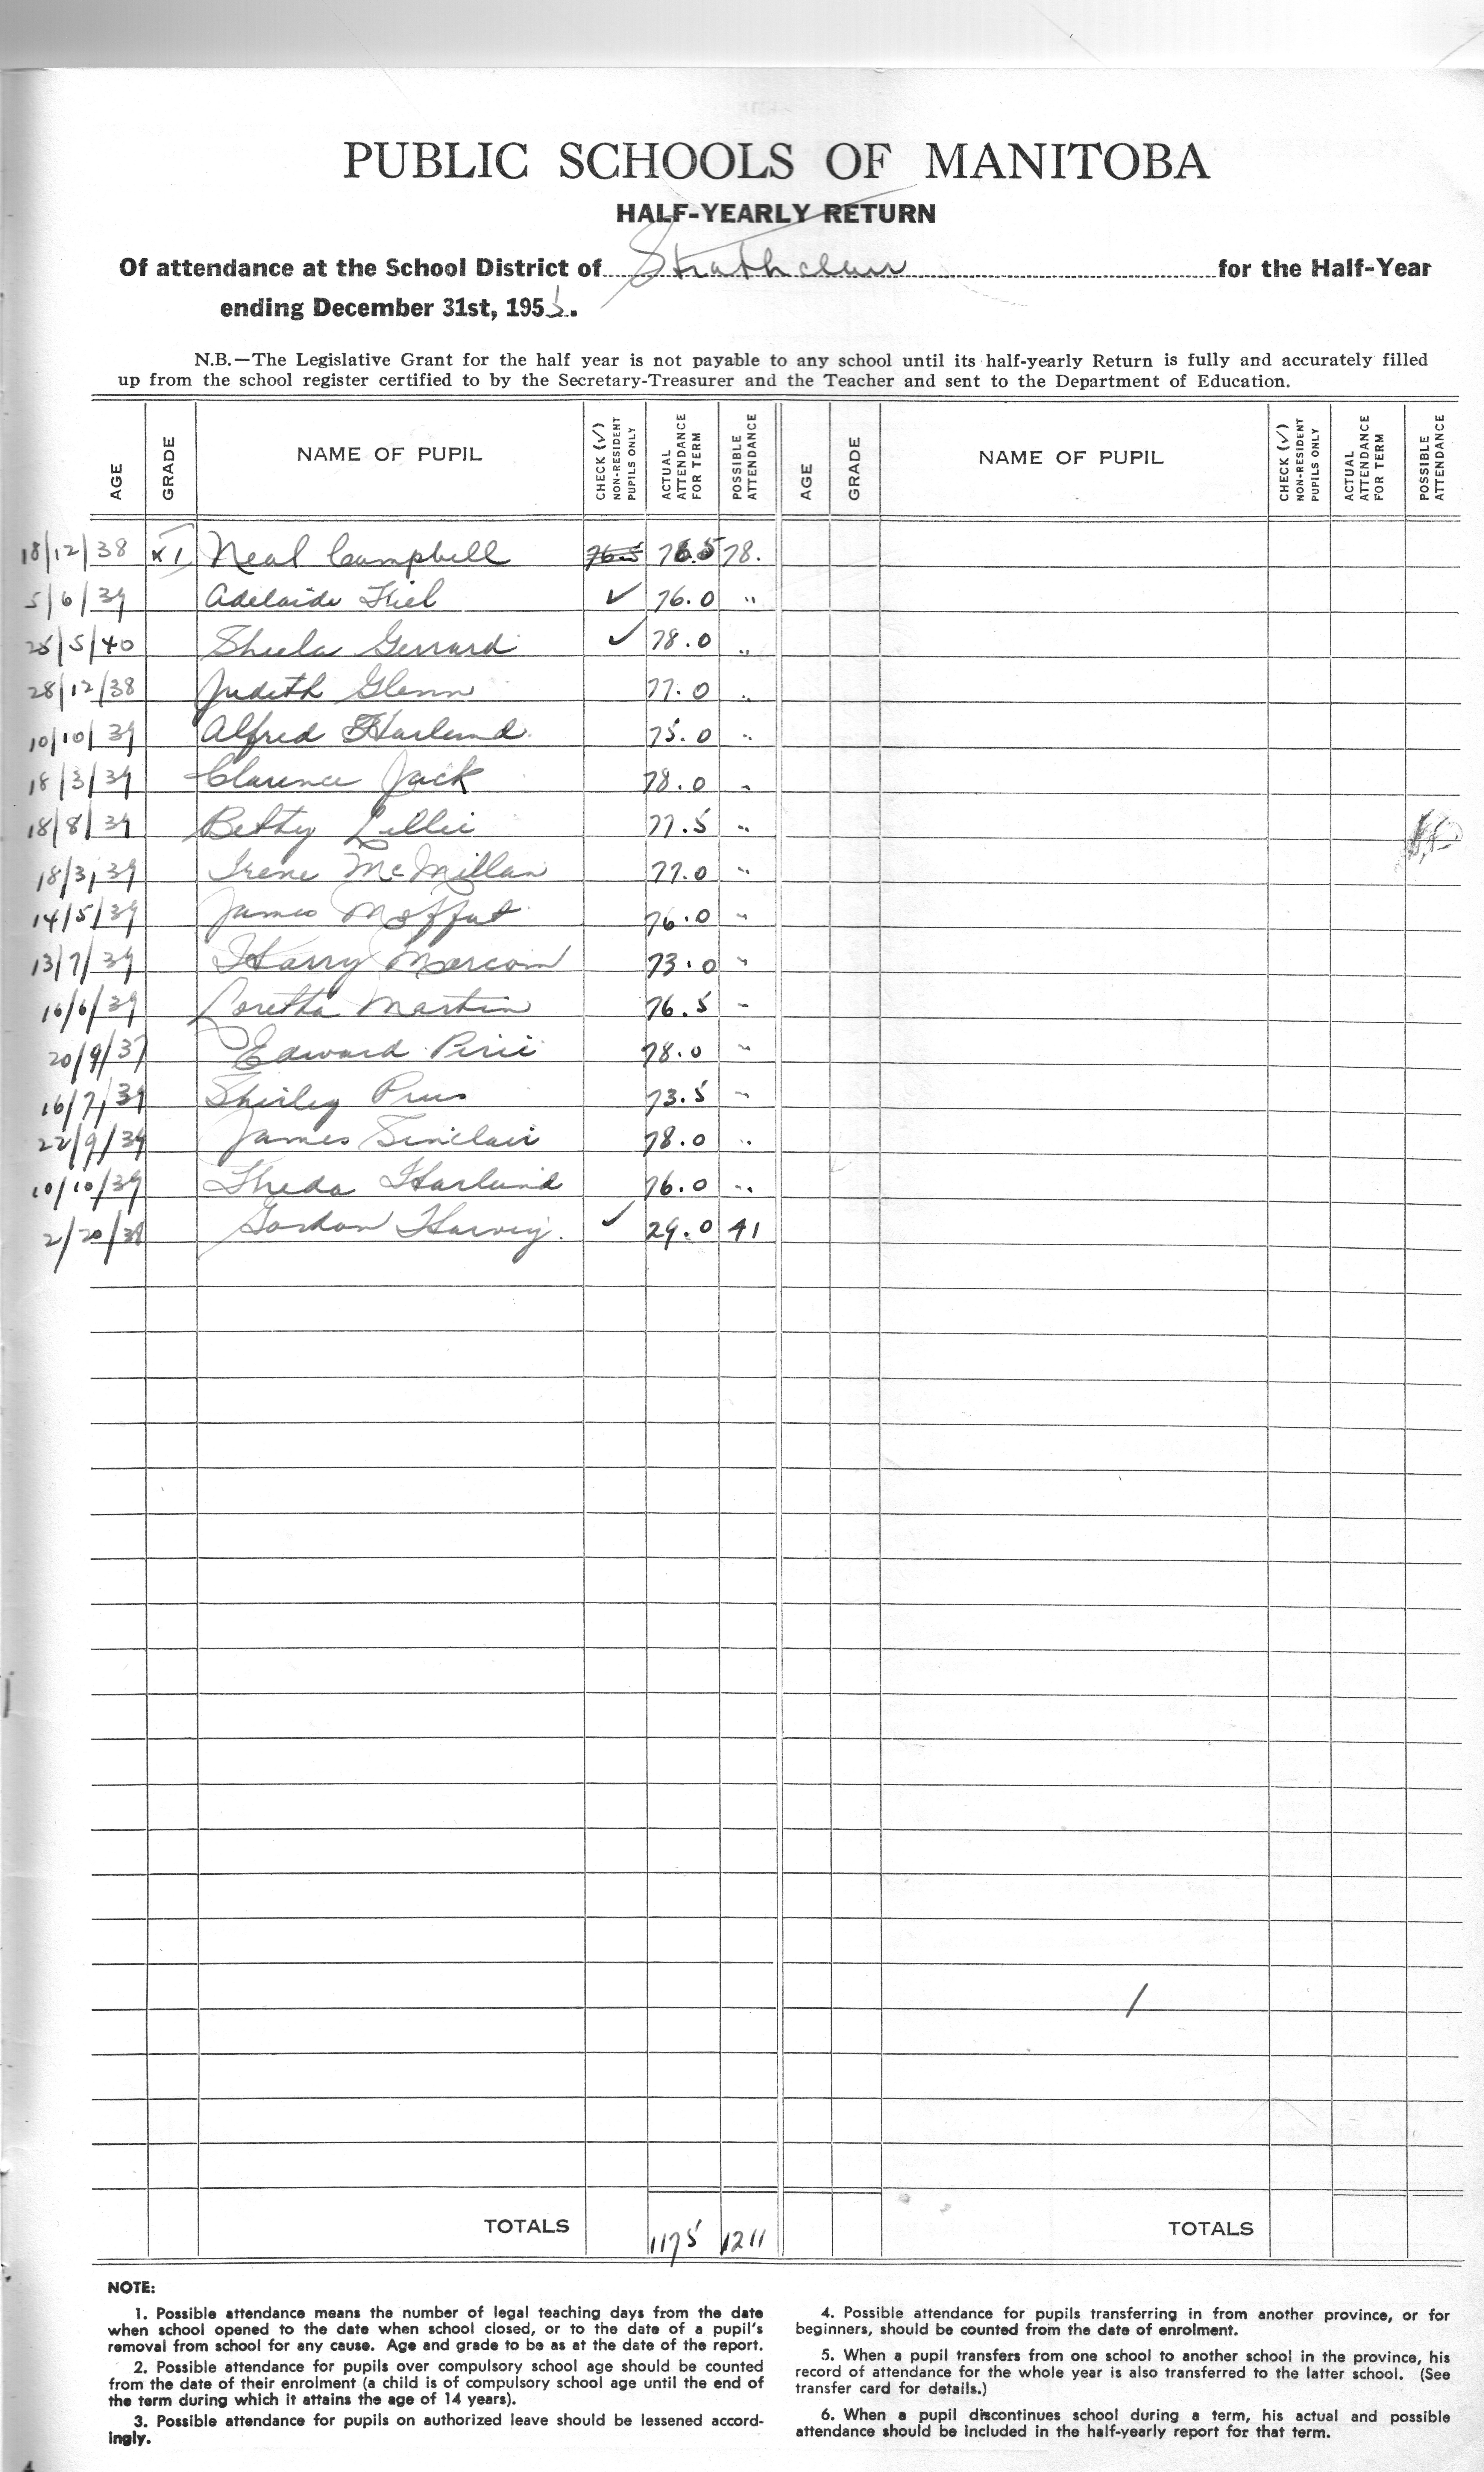 PUBLIC SCHOOLS OF MANITOBA
HALF-YEARLY RETURN
Of attendance at the School District of Strathclair for the Half-Year
ending December 31st, 1955.
N.B.—The Legislative Grant for the half year is not payable to any school until its half-yearly Return is fully and accurately filled
up from the school register certified to by the Secretary-Treasurer and the Teacher and sent to the Department of Education.
AGE GRADE NAME OF PUPIL CHECK (✓) NON-RESIDENT PUPILS ONLY ACTUAL ATTENDANCE FOR TERM POSSIBLE ATTENDANCE AGE GRADE NAME OF PUPIL CHECK (✓) NON-RESIDENT PUPILS ONLY ACTUAL ATTENDANCE FOR TERM POSSIBLE ATTENDANCE
18/12/38 XI Neal Campbell 76.5 76.5 78.
5/6/39 Adelaide Kiel ✓ 76.0 "
25/5/40 Sheila Gerrard ✓ 78.0 "
28/12/38 Judith Glenn 77.0 "
10/10/39 Alfred Harland 75.0 "
18/3/39 Clarence Jack 78.0 "
18/8/39 Betty Lillie 77.5 "
18/3/39 Irene McMillan 77.0 "
14/5/39 James Moffat 76.0 "
13/7/39 Harry Marcom 73.0 "
16/6/39 Loretta Martin 76.5 "
20/9/37 Edward Pirie 78.0 "
16/7/39 Shirley 73.5 "
22/9/39 James Sinclair 78.0 "
10/10/39 Theda Harland 76.0 "
2/20/38 Gordon Harvey. ✓ 29.0 41
TOTALS 1175 1211 TOTALS
NOTE:
1. Possible attendance means the number of legal teaching days from the date
when school opened to the date when school closed, or to the date of a pupil's
removal from school for any cause. Age and grade to be as at the date of the report.
2. Possible attendance for pupils over compulsory school age should be counted
from the date of their enrolment (a child is of compulsory school age until the end of
the term during which it attains the age of 14 years).
3. Possible attendance for pupils on authorized leave should be lessened accord-
ingly.
4. Possible attendance for pupils transferring in from another province, or for
beginners, should be counted from the date of enrolment.
5. When a pupil transfers from one school to another school in the province, his
record of attendance for the whole year is also transferred to the latter school. (See
transfer card for details.)
6. When a pupil discontinues school during a term, his actual and possible
attendance should be included in the half-yearly report for that term.